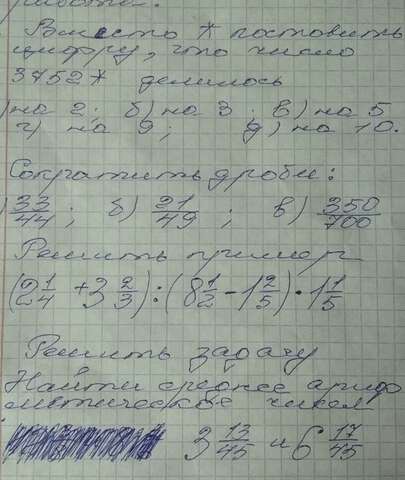 работы.
Вместо * поставить
цифру, что число
3752* делилось
)на 2; б) на 3; в) на 5
г) на 9; д) на 10.
Сократить дроби:
) 33/44; б) 21/49; в) 350/700
Решить пример
(2 1/4 + 3 2/3) : (8 1/2 - 1 2/5) · 1 1/5
Решить задачу
Найти среднее арифо
метическое чисел
3 13/45 и 6 17/45